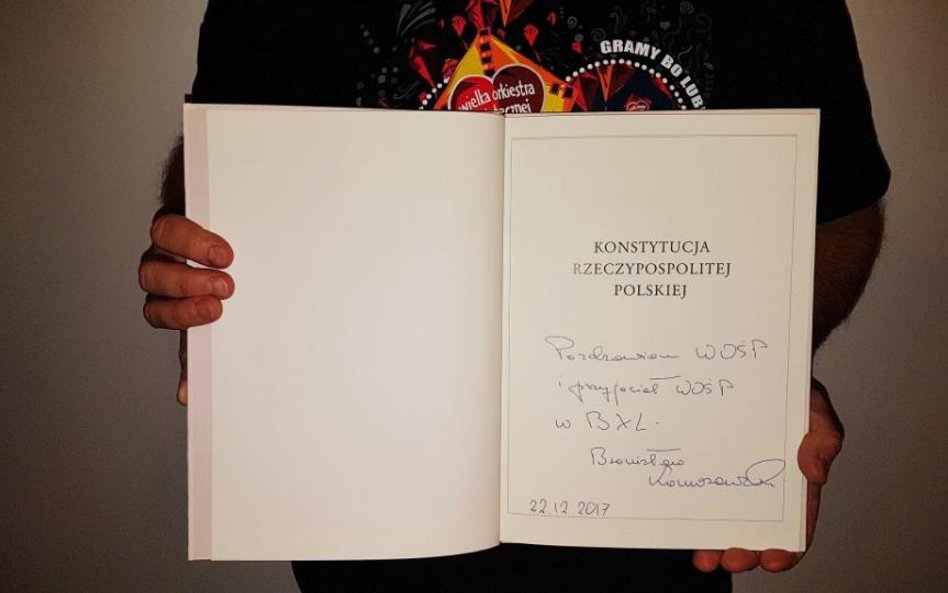 GRAMY BO LUB
wielka orkiestra
KONSTYTUCJA
RZECZYPOSPOLITEJ
POLSKIEJ
Pozdrawiam WOŚP
i przyjaciół WOŚP
w BXL.
Bronisław
Komorowski
22.12.2017